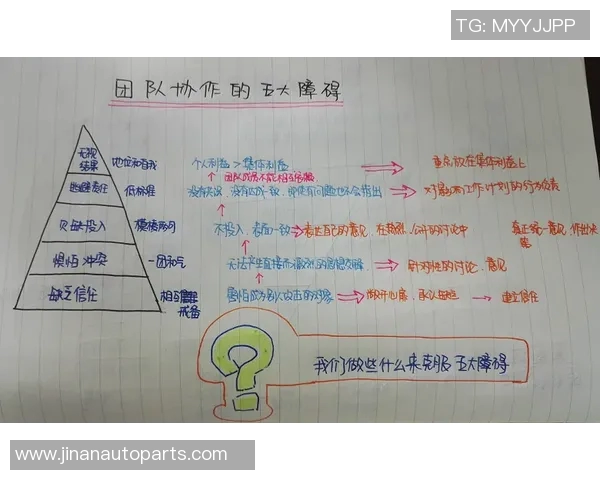 TG: MYYJJPP
团队协作的五大障碍
无视结果 地位和自我 个人利益 > 集体利益 重点放在集体利益上
团队成员不能相互
逃避责任 低标准 没有 没有达成一致, 即使有问题也不会指出 对影响工作计划的行为负责
欠缺投入 模棱两可 不投入, 表面一致 表达自己的意见, 在 公开的讨论中 真正统一意见, 作出决策
惧怕冲突 一团和气 无法产生直接而激烈的思想交锋 针对性的讨论, 意见
缺乏信任 相互戒备 害怕成为别人攻击的对象 敞开心扉, 承认缺点 建立信任
我们做些什么来克服五大障碍
www.jinanautoparts.com